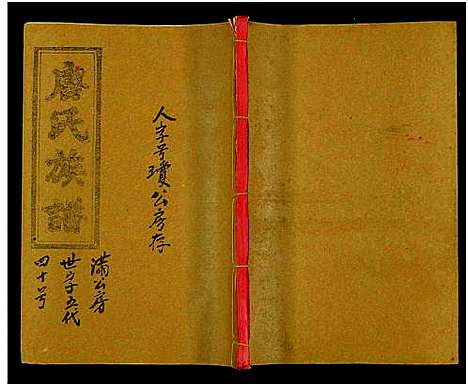 唐氏族譜
人字号瓊公房存
满公房
世字五代
四十号